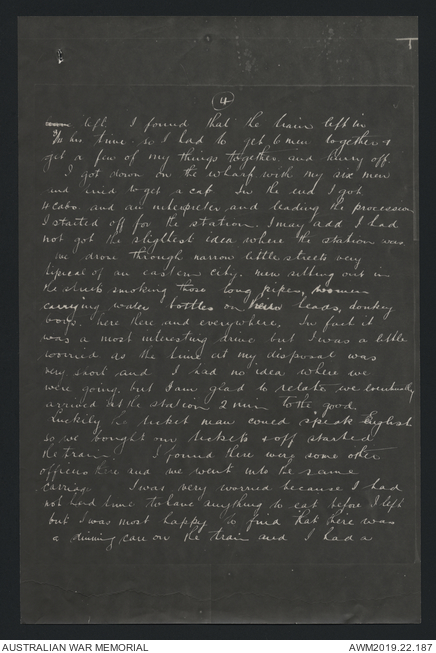 4
left. I found that the train left in
½ hrs time so I had to get 6 men together &
get a few of my things together and hurry off.
I got down on the wharf with my six men
and tried to get a cab. In the end I got
4 cabs. and an interpreter and leading the procession
I started off for the station. I may add I had
not got the slightest idea where the station was
We drove through narrow little streets very
typical of an eastern city. men sitting out in
the streets smoking those long pipes, women
carrying water bottles on their heads, donkey
boys. here there and everywhere. In fact it
was a most interesting drive but I was a little
worried as the time at my disposal was
very short and I had no idea where we
were going, but I am glad to relate we eventually
arrived at the station 2 min to the good.
Luckily the ticket man could speak English
so we bought our tickets & off started
the train. I found there were some other
officers there and we went into the same
carriage I was very worried because I had
not had time to have anything to eat before I left
but I was most happy to find that there was
a dining care on the train and I had a
AUSTRALIAN WAR MEMORIAL
AWM2019.22.187